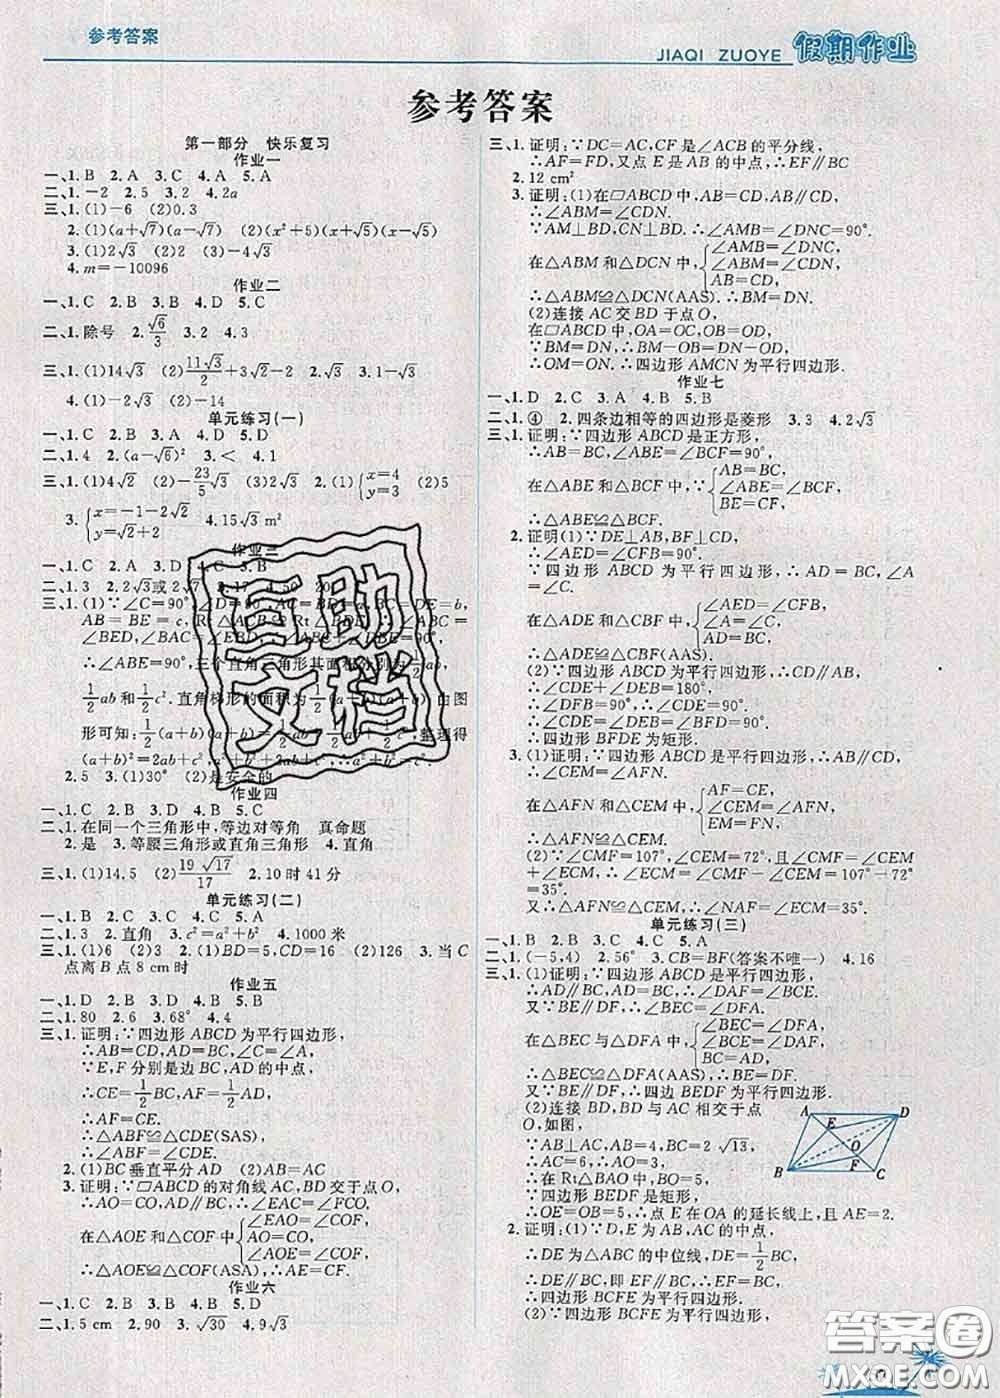 参考答案
JIAQI ZUOYE 假期作业
参考答案
第一部分 快乐复习
作业一
一、1. B 2. A 3. C 4. A 5. A
二、1. －2 2. 5 3. 2 4. 2a
三、1. (1)－6 (2)0.3
2. (1)(a＋√7)(a－√7) (2)(x²＋5)(x＋√5)(x－√5)
3. (1)2√3 (2)3 (3)－4√3
4. m＝－10096
作业二
一、1. C 2. B 3. A 4. D 5. C
二、1. 除号 2. √6/3 3. 2 4. 3
三、1. (1)14√3 (2)11√3/2＋3√2－2 2. √3 3. √3
4. (1)－2√3 (2)－14
单元练习(一)
一、1. C 2. B 3. A 4. D 5. D
二、1. 4 2. (a－√6)² 3. ＜ 4. 1
三、1. (1)4√2 (2)－23/5√3 2. (1){x＝4 y＝3 (2)5
3. {x＝－1－2√2 y＝√2＋2 4. 15√3 m²
作业三
二、1. 3 2. 2√3或2√7
三、1. (1)∵∠C＝90°
AB＝BE＝c, Rt△
∠BED, ∠BAC＝
∴∠ABE＝90°, 三个直角三角形其面积分别为1/2ab,
1/2ab和1/2c². 直角梯形的面积为1/2(a＋b)(a＋b). 由图
形可知: 1/2(a＋b)(a＋b)＝ 整理得
(a＋b)²＝2ab＋c²,
2. 5 3. (1)30° (2)是安全的
作业四
一、1. C 2. B 3. D 4. B 5. C
二、1. 在同一个三角形中, 等边对等角 真命题
2. 是 3. 等腰三角形或直角三角形 4. 直角
三、1. (1)14.5 (2)19√17/17 2. 10时41分
单元练习(二)
一、1. B 2. C 3. C 4. C 5. A
二、1. 3 2. 直角 3. c²＝a²＋b² 4. 1000米
三、1. (1)6 (2)3 2. (1)BD＝5, CD＝16 (2)126 3. 当C
点离B点8 cm时
作业五
一、1. C 2. D 3. D 4. B 5. B
二、1. 80 2. 6 3. 68° 4. 4
三、1. 证明: ∵四边形ABCD为平行四边形,
∴AB＝CD, AD＝BC, ∠C＝∠A.
∵E, F分别是边BC, AD的中点,
∴CE＝1/2BC, AF＝1/2AD,
∴AF＝CE.
∴△ABF≌△CDE(SAS),
∴∠ABF＝∠CDE.
2. (1)BC垂直平分AD (2)AB＝AC
3. 证明: ∵▱ABCD的对角线AC, BD交于点O,
∴AO＝CO, AD∥BC, ∴∠EAC＝∠FCO,
在△AOE和△COF中{∠EAO＝∠COF, AO＝CO, ∠AOE＝∠COF,
∴△AOE≌△COF(ASA), ∴OE＝OF.
作业六
一、1. C 2. B 3. A 4. B 5. D
二、1. 5 cm 2. 90 3. √30 4. 9√3
三、1. 证明: ∵DC＝AC, CF是∠ACB的平分线,
∴AF＝FD, 又点E是AB的中点, ∴EF∥BC
2. 12 cm²
3. 证明: (1)在▱ABCD中, AB＝CD, AB∥CD,
∴∠ABM＝∠CDN.
∵AM⊥BD, CN⊥BD. ∴∠AMB＝∠DNC＝90°.
在△ABM和△DCN中, {∠ABM＝∠CDN, ∠AMB＝∠DNC, AB＝CD,
∴△ABM≌△DCN(AAS). ∴BM＝DN.
(2)连接AC交BD于点O,
在▱ABCD中, OA＝OC, OB＝OD,
∵BM＝DN, ∴BM－OB＝DN－OD,
∴OM＝ON. ∴四边形AMCN为平行四边形.
作业七
一、1. D 2. C 3. A 4. B 5. B
二、1. ④ 2. 四条边相等的四边形是菱形 3. 3 4. 2√3
三、1. 证明: ∵四边形ABCD是正方形,
∴AB＝BC, ∠ABE＝∠BCF＝90°,
在△ABE和△BCF中, ∵{AB＝BC, ∠ABE＝∠BCF, BE＝CF,
∴△ABE≌△BCF.
2. 证明: (1)∵DE⊥AB, BF⊥CD,
∴∠AED＝∠CFB＝90°.
∵四边形ABCD为平行四边形, ∴AD＝BC, ∠A
＝∠C,
在△ADE和△CBF中, {∠AED＝∠CFB, ∠A＝∠C, AD＝BC,
∴△ADE≌△CBF(AAS).
(2)∵四边形ABCD为平行四边形, ∴CD∥AB,
∴∠CDE＋∠DEB＝180°.
∴∠DFB＝90°, ∴∠CDE＝90°,
∴四边形BFDE为矩形.
3. (1)证明: ∵四边形ABCD是平行四边形,
∴∠CEM＝∠AFN.
在△AFN和△CEM中, {AF＝CE, ∠CEM＝∠AFN, EM＝FN,
∴△AFN≌△CEM.
(2)∵∠CMF＝107°, ∠CEM＝72°, 且∠CMF＝∠CEM
＋∠ECM, ∴∠ECM＝∠CMF－∠CEM＝107°－72°
＝35°.
又∵△AFN≌△CEM, ∴∠NAF＝∠ECM＝35°.
单元练习(三)
一、1. B 2. A 3. C 4. C 5. A
二、1. (－5,4) 2. 56° 3. CB＝BF(答案不唯一) 4. 16
三、1. (1)证明: ∵四边形ABCD是平行四边形,
∴AD∥BC, AD＝BC, ∴∠DAF＝∠BCE.
又∵BE∥DF, ∴∠BEC＝∠DFA.
在△BEC与△DFA中, {∠BEC＝∠DFA, ∠BCE＝∠DAF, BC＝DA,
∴△BEC≌△DFA(AAS), ∴BE＝DF.
又∵BE∥DF, ∴四边形BEDF为平行四边形.
(2)连接BD, BD与AC相交于点
O, 如图,
∵AB⊥AC, AB＝4, BC＝2√13,
∴AC＝6, ∴AO＝3,
∴在Rt△BAO中, BO＝5,
∵四边形BEDF是矩形,
∴OE＝OB＝5, ∴点E在OA的延长线上, 且AE＝2.
A D E O B F C
2. 证明: (1)∵D, E为AB, AC的中点,
∴DE为△ABC的中位线, DE＝1/2BC,
∴DE∥BC, 即EF∥BC, ∴DE∥BC,
∴四边形BCFE为平行四边形.
(2)∵四边形BCFE为平行四边形,
互助文档
答案圈
MXQE.COM